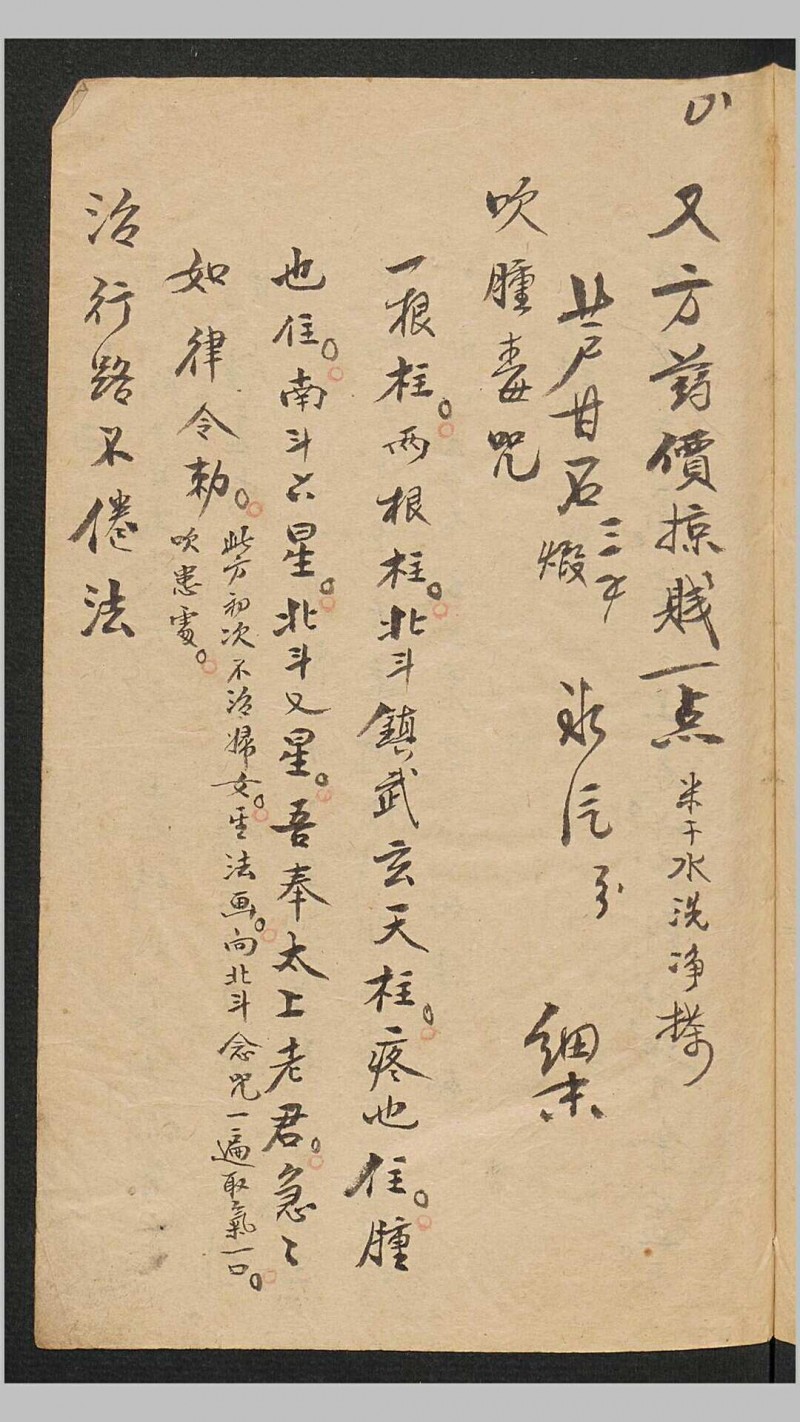 又方药價掠賤一点 米干水洗净搽
芦甘石 三才 煅 冰片 細末
吹腫毒咒
一根柱。两根柱。北斗鎮武玄天柱。疼也住。腫
也住。南斗六星。北斗七星。吾奉太上老君。急〻
如律令勅。此方初次不治婦女。 法画。向北斗念咒一遍取氣一口。
吹患處。
治行路不倦法